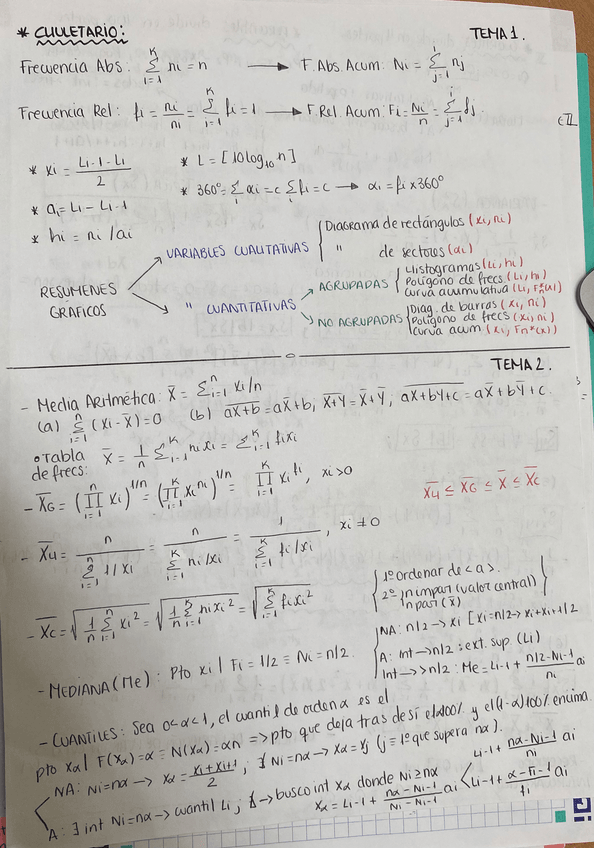 * CHULETARIO:
TEMA 1.
Frecuencia Abs: Σ_{i=1}^{K} ni = n → F. Abs. Acum: Ni = Σ_{j=1}^{i} nj
Frecuencia Rel: fi = ni/n; = Σ_{i=1}^{K} fi = 1 → F. Rel. Acum: Fi = Ni/n = Σ_{j=1}^{i} fj.
* xi = (Li-1-Li)/2
* L = [10 log10 n]
* 360º = Σ_i αi = c Σ_i fi = c → αi = fi x 360º
* ai = Li - Li-1
* hi = ni / ai
RESÚMENES GRÁFICOS
VARIABLES CUALITATIVAS
Diagrama de rectángulos (xi, ni)
" de sectores (αi)
" CUANTITATIVAS
AGRUPADAS
Histogramas (Li, hi)
Polígono de frecs (Li, hi)
Curva acumulativa (Li, Fn*(x))
NO AGRUPADAS
Diag. de barras (xi, ni)
Polígono de frecs (xi, ni)
Curva acum (xi, Fn*(x))
TEMA 2.
- Media Aritmética: X̄ = Σ_{i=1}^{n} xi/n
(a) Σ_{i=1}^{n} (xi - X̄) = 0 (b) \overline{aX+b} = aX̄+b, \overline{X+Y} = X̄+Ȳ, \overline{aX+bY+c} = aX̄+bȲ+c.
• Tabla de frecs: X̄ = 1/n Σ_{i=1}^{K} ni xi = Σ_{i=1}^{K} fi xi
- X̄G = (Π_{i=1}^{n} xi)^{1/n} = (Π_{i=1}^{K} xi^{ni})^{1/n} = Π_{i=1}^{K} xi^{fi}, xi > 0
X̄H ≤ X̄G ≤ X̄ ≤ X̄C
- X̄H = n / Σ_{i=1}^{n} 1/xi = n / Σ_{i=1}^{K} ni/xi = 1 / Σ_{i=1}^{K} fi/xi, xi ≠ 0
- X̄C = √(1/n Σ_{i=1}^{n} xi²) = √(1/n Σ_{i=1}^{K} ni xi²) = √(Σ_{i=1}^{K} fi xi²)
1º Ordenar de <a>.
2º n impar (valor central)
n par (x̄)
- MEDIANA (Me): Pto xi | Fi = 1/2 ≡ Ni = n/2.
NA: n/2 → xi [xi = n/2 → xi + xi+1/2
A: Int → n/2: ext. sup. (Li)
Int → > n/2: Me = Li-1 + (n/2 - Ni-1)/ni ai
- CUANTILES: Sea 0<α<1, el cuantil de orden α es el
pto xα | F(xα) = α ≡ N(xα) = αn => pto que deja tras de sí el α100% y el (1-α)100% encima.
NA: Ni = nα → xα = (xi + xi+1)/2; ∄ Ni = nα → xα = xj (j = 1º que supera nα).
A: ∃ int Ni = nα → cuantil Li; ∄ → busco int xα donde Ni ≥ nα
xα = Li-1 + (nα - Ni-1)/(Ni - Ni-1) ai
Li-1 + (nα - Ni-1)/ni ai
Li-1 + (α - Fi-1)/fi ai